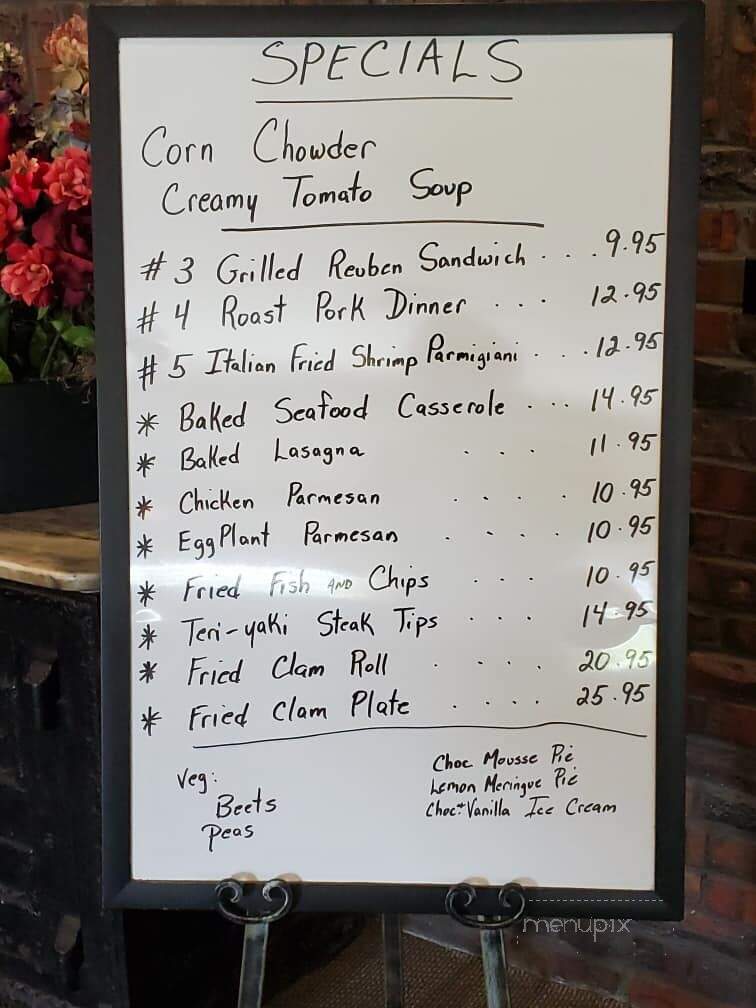 SPECIALS
Corn Chowder
Creamy Tomato Soup
#3 Grilled Reuben Sandwich . . . 9.95
#4 Roast Pork Dinner . . . 12.95
#5 Italian Fried Shrimp Parmigiani . . . 12.95
* Baked Seafood Casserole . . . 14.95
* Baked Lasagna . . . 11.95
* Chicken Parmesan . . . . 10.95
* EggPlant Parmesan . . . . 10.95
* Fried Fish AND Chips . . . 10.95
* Teri-yaki Steak Tips . . . 14.95
* Fried Clam Roll . . . . 20.95
* Fried Clam Plate . . . . 25.95
Veg:
Beets
Peas
Choc Mousse Pie
Lemon Meringue Pie
Choc+Vanilla Ice Cream
menupix